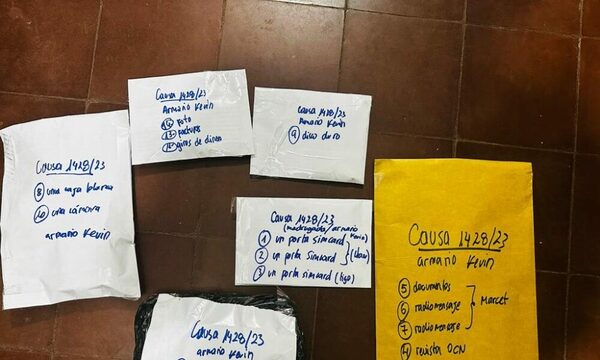 Causa 1428/23
Armario Kevin
12 foto
13 facturas
14 giros de dinero
Causa 1428/23
Armario Kevin
9 disco duro
Causa 1428/23
8 una caja blanca
10 una cámara
armario Kevin
Causa 1428/23
(madrugada/armario Kevin)
1 un porta simcard
2 un porta simcard
3 un porta simcard (tigo)
Causa 1428/23
armario Kevin
5 documentos
6 radiomensaje
7 radiomensaje
Marcet
4 revista OCN
Causa 1428/23
armario Kevin